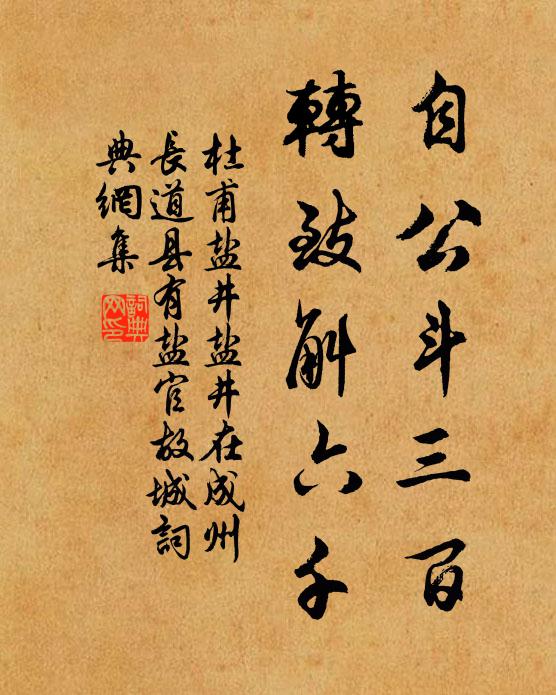 自公斗三百
轉致斛六千
杜甫盐井盐井在成州
長道县有盐官故城詞
典網集
詞典
网印